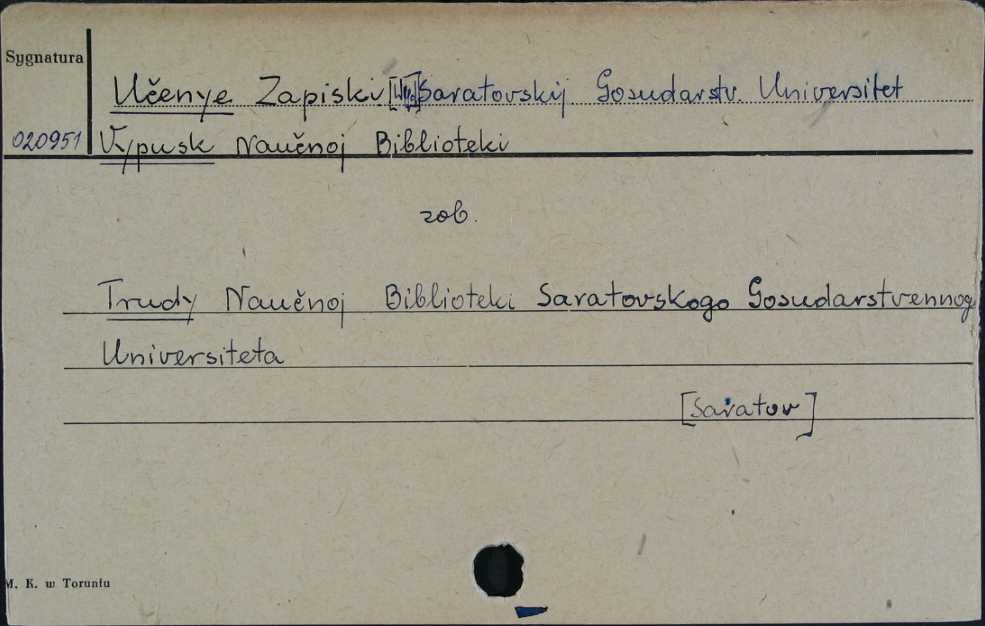 Sygnatura
Učenye Zapiski Saratovskij Gosudarstv. Universitet
020951 Vypusk Naučnoj Biblioteki
zob.
Trudy Naučnoj Biblioteki Saratovskogo Gosudarstvennog
Universiteta
[Saratov]
M. K. w Toruniu